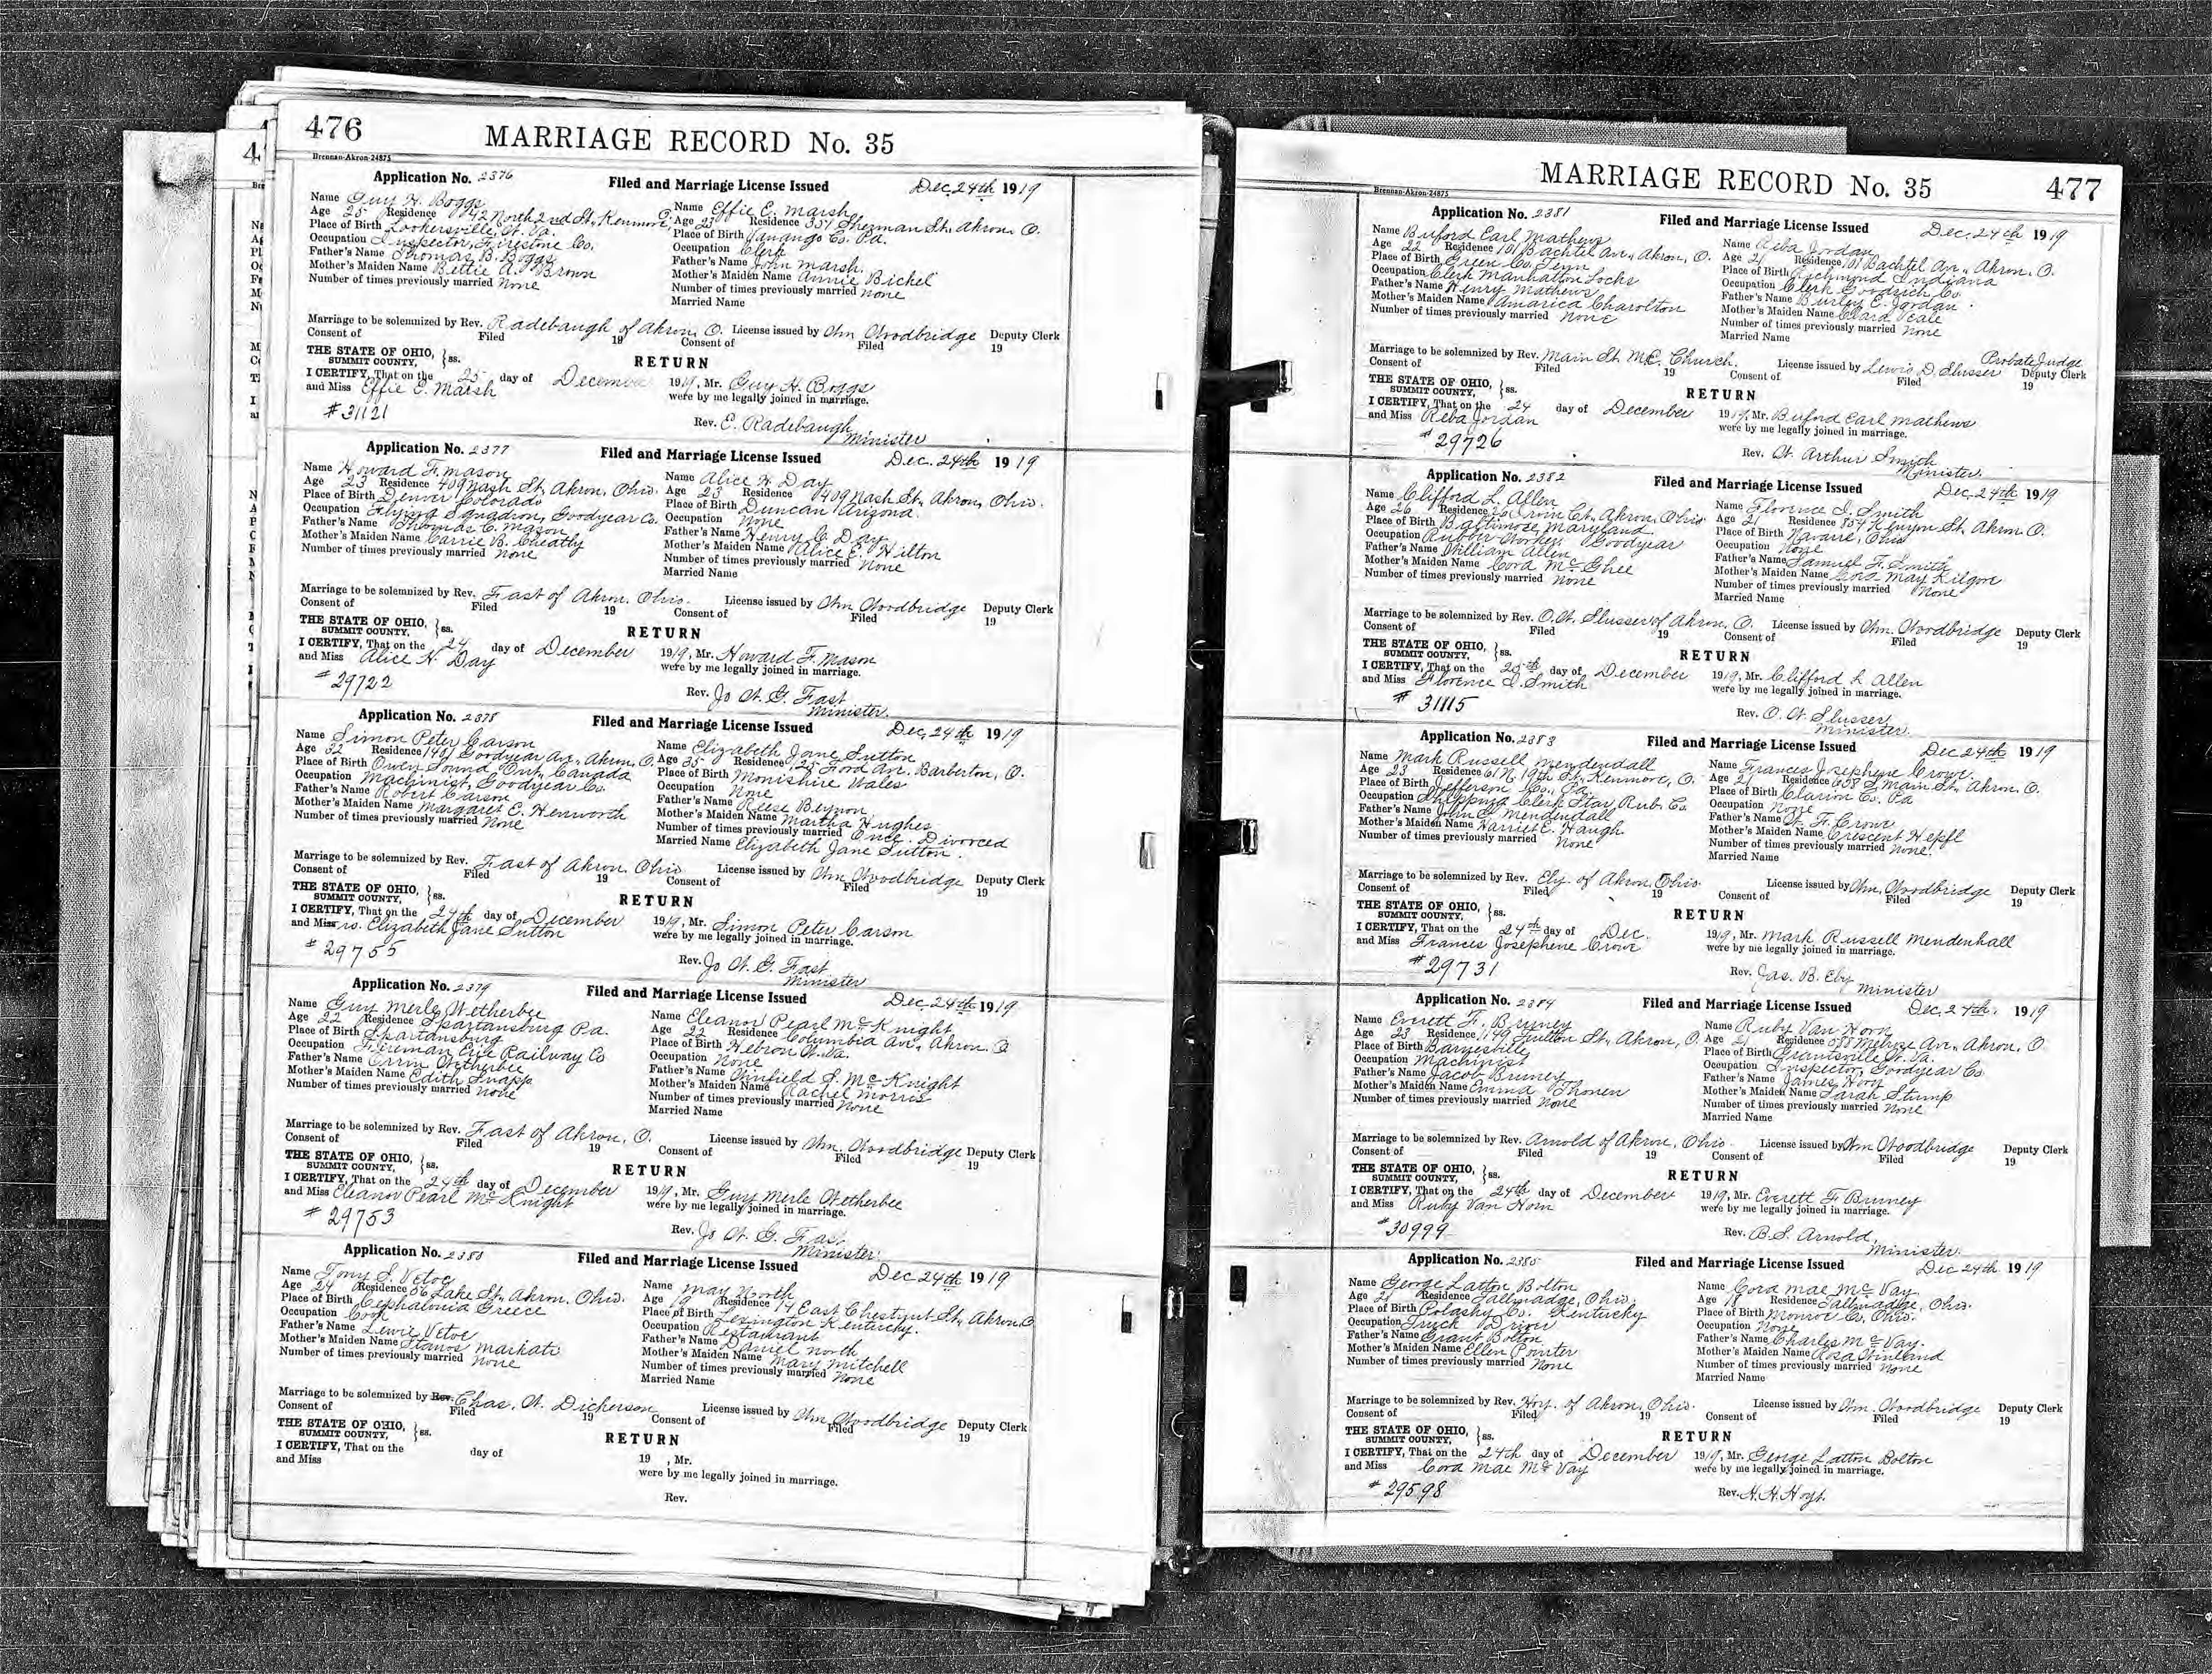 476
MARRIAGE RECORD No. 35
Brennan-Akron-24875
Application No. 2376 Filed and Marriage License Issued Dec. 24th 1919
Name Guy H. Boggs Name Effie E. Marsh
Age 25 Residence 142 North 2nd St., Kenmore, O. Age 23 Residence 351 Sherman St., Akron, O.
Place of Birth Lookersville, W. Va. Place of Birth Vanango Co. Pa.
Occupation Inspector, Firestone Co. Occupation Clerk
Father's Name Thomas B. Boggs Father's Name John Marsh.
Mother's Maiden Name Bettie A. Brown Mother's Maiden Name Annie Bickel
Number of times previously married None Number of times previously married None
Married Name
Marriage to be solemnized by Rev. Radebaugh of Akron, O. License issued by Wm Woodbridge Deputy Clerk
Consent of Filed 19 Consent of Filed 19
THE STATE OF OHIO, SUMMIT COUNTY, } ss. RETURN
I CERTIFY, That on the 25 day of December 1919, Mr. Guy H. Boggs
and Miss Effie E. Marsh were by me legally joined in marriage.
# 31121 Rev. E. Radebaugh
Minister
Application No. 2377 Filed and Marriage License Issued Dec. 24th 1919
Name Howard F. Mason Name Alice H. Day
Age 23 Residence 409 Nash St., Akron, Ohio. Age 23 Residence 409 Nash St., Akron, Ohio.
Place of Birth Denver Colorado Place of Birth Duncan Arizona.
Occupation Flying Squadron, Goodyear Co. Occupation None
Father's Name Thomas C. Mason Father's Name Henry C. Day
Mother's Maiden Name Carrie B. Cheathy Mother's Maiden Name Alice E. Hilton
Number of times previously married None Number of times previously married None
Married Name
Marriage to be solemnized by Rev. Fast of Akron, Ohio. License issued by Wm Woodbridge Deputy Clerk
Consent of Filed 19 Consent of Filed 19
THE STATE OF OHIO, SUMMIT COUNTY, } ss. RETURN
I CERTIFY, That on the 24 day of December 1919, Mr. Howard F. Mason
and Miss Alice H. Day were by me legally joined in marriage.
# 29722 Rev. Jo W. G. Fast
Minister.
Application No. 2378 Filed and Marriage License Issued Dec. 24th 1919
Name Simon Peter Carson Name Elizabeth Jane Sutton
Age 32 Residence 1401 Goodyear Av., Akron, O. Age 35 Residence 125 Ford Av. Barberton, O.
Place of Birth Owen Sound, Ont., Canada Place of Birth Monishire Wales
Occupation Machinist, Goodyear Co. Occupation None
Father's Name Robert Carson Father's Name Reese Beynon
Mother's Maiden Name Margaret E. Henworth Mother's Maiden Name Martha Hughes
Number of times previously married None Number of times previously married Once. Divorced
Married Name Elizabeth Jane Sutton.
Marriage to be solemnized by Rev. Fast of Akron, Ohio License issued by Wm Woodbridge Deputy Clerk
Consent of Filed 19 Consent of Filed 19
THE STATE OF OHIO, SUMMIT COUNTY, } ss. RETURN
I CERTIFY, That on the 24th day of December 1919, Mr. Simon Peter Carson
and Mrs. Elizabeth Jane Sutton were by me legally joined in marriage.
# 29755 Rev. Jo W. G. Fast
Minister
Application No. 2379 Filed and Marriage License Issued Dec. 24th 1919
Name Guy Merle Wetherbee Name Eleanor Pearl McKnight
Age 22 Residence Spartansburg Pa. Age 22 Residence Columbia Av., Akron. O
Place of Birth Spartansburg Place of Birth Hebron W. Va.
Occupation Fireman Erie Railway Co Occupation None
Father's Name Orrin Wetherbee Father's Name Winfield S. McKnight
Mother's Maiden Name Edith Snapp Mother's Maiden Name Rachel Morris
Number of times previously married None Number of times previously married None
Married Name
Marriage to be solemnized by Rev. Fast of Akron, O. License issued by Wm. Woodbridge Deputy Clerk
Consent of Filed 19 Consent of Filed 19
THE STATE OF OHIO, SUMMIT COUNTY, } ss. RETURN
I CERTIFY, That on the 24th day of December 1919, Mr. Guy Merle Wetherbee
and Miss Eleanor Pearl McKnight were by me legally joined in marriage.
# 29753 Rev. Jo W. G. Fast
Minister.
Application No. 2380 Filed and Marriage License Issued Dec 24th 1919
Name Tony S. Vetoe Name May North
Age 24 Residence 56 Lake St., Akron, Ohio. Age Residence 14 East Chestnut St., Akron. O
Place of Birth Cephalonia Greece Place of Birth Lexington Kentucky.
Occupation Cook Occupation Restaurant
Father's Name Lewis Vetoe Father's Name Daniel North
Mother's Maiden Name Markati Mother's Maiden Name Mary Mitchell
Number of times previously married None Number of times previously married None
Married Name
Marriage to be solemnized by Rev. Chas. W. Dickerson License issued by Wm. Woodbridge Deputy Clerk
Consent of Filed 19 Consent of Filed 19
THE STATE OF OHIO, SUMMIT COUNTY, } ss. RETURN
I CERTIFY, That on the day of 19 , Mr.
and Miss were by me legally joined in marriage.
Rev.
MARRIAGE RECORD No. 35
477
Brennan-Akron-24875
Application No. 2381 Filed and Marriage License Issued Dec. 24th 1919
Name Buford Earl Mathews Name Reba Jordan
Age 22 Residence 101 Bachtel Av., Akron, O. Age 21 Residence 101 Bachtel Av., Akron, O.
Place of Birth Green Co. Tenn Place of Birth Richmond Indiana
Occupation Clerk Manhattan Locks Occupation Clerk Goodrich Co.
Father's Name Henry Mathews Father's Name Burley E. Jordan.
Mother's Maiden Name Amarica Charolton Mother's Maiden Name Clara Teale
Number of times previously married None Number of times previously married None
Married Name
Probate Judge
Marriage to be solemnized by Rev. Main St. M.E. Church. License issued by Lewis D. Slusser Deputy Clerk
Consent of Filed 19 Consent of Filed 19
THE STATE OF OHIO, SUMMIT COUNTY, } ss. RETURN
I CERTIFY, That on the 24 day of December 1919, Mr. Buford Earl Mathews
and Miss Reba Jordan were by me legally joined in marriage.
# 29726 Rev. W. Arthur Smith
Minister.
Application No. 2382 Filed and Marriage License Issued Dec. 24th 1919
Name Clifford L. Allen Name Florence I. Smith
Age 26 Residence Ct., Akron, Ohio Age 21 Residence 854 Kenyon St., Akron O.
Place of Birth Baltimore Maryland. Place of Birth Navarre, Ohio
Occupation Rubber Worker, Goodyear Occupation None
Father's Name William Allen Father's Name Samuel F. Smith
Mother's Maiden Name Cora McGhee Mother's Maiden Name Cora May Kilgore
Number of times previously married None Number of times previously married None
Married Name
Marriage to be solemnized by Rev. O. W. Slusser of Akron, O. License issued by Wm. Woodbridge Deputy Clerk
Consent of Filed 19 Consent of Filed 19
THE STATE OF OHIO, SUMMIT COUNTY, } ss. RETURN
I CERTIFY, That on the 25th day of December 1919, Mr. Clifford L. Allen
and Miss Florence I. Smith were by me legally joined in marriage.
# 31115 Rev. O. W. Slusser
Minister.
Application No. 2383 Filed and Marriage License Issued Dec 24th 1919
Name Mark Russell Mendendall Name Frances Josephene Crowe
Age 23 Residence 61 N. 19th St., Kenmore, O. Age 21 Residence 658 S. Main St., Akron, O.
Place of Birth Jefferson Co., Pa. Place of Birth Clarion Co. Pa
Occupation Shipping Clerk Star Rub. Co. Occupation None
Father's Name John S. Mendendall Father's Name W. F. Crowe
Mother's Maiden Name Harriet E. Haugh Mother's Maiden Name Crescent Hepfl
Number of times previously married None Number of times previously married None.
Married Name
Marriage to be solemnized by Rev. Ely. of Akron, Ohio. License issued by Wm. Woodbridge Deputy Clerk
Consent of Filed 19 Consent of Filed 19
THE STATE OF OHIO, SUMMIT COUNTY, } ss. RETURN
I CERTIFY, That on the 24th day of Dec. 1919, Mr. Mark Russell Mendenhall
and Miss Frances Josephene Crowe were by me legally joined in marriage.
# 29731 Rev. Jas. B. Ely
Minister
Application No. 2384 Filed and Marriage License Issued Dec. 24th. 1919
Name Everett F. Bruney Name Ruby Van Horn
Age 23 Residence 1149 Fulton St., Akron, O. Age 21 Residence 588 Melrose Av., Akron, O
Place of Birth Barnesville Place of Birth Grantsville W. Va.
Occupation Machinist Occupation Inspector, Goodyear Co
Father's Name Jacob Bruney Father's Name James Horn
Mother's Maiden Name Emma Thonen Mother's Maiden Name Sarah Stump
Number of times previously married None Number of times previously married None
Married Name
Marriage to be solemnized by Rev. Arnold of Akron, Ohio. License issued by Wm Woodbridge Deputy Clerk
Consent of Filed 19 Consent of Filed 19
THE STATE OF OHIO, SUMMIT COUNTY, } ss. RETURN
I CERTIFY, That on the 24th day of December 1919, Mr. Everett F. Bruney
and Miss Ruby Van Horn were by me legally joined in marriage.
# 30999 Rev. B. S. Arnold,
Minister.
Application No. 2385 Filed and Marriage License Issued Dec 24th 1919
Name George Latton Bolton Name Cora Mae McVay
Age 21 Residence Tallmadge, Ohio. Age 18 Residence Tallmadge, Ohio.
Place of Birth Polasky Co. Kentucky Place of Birth Monroe Co, Ohio.
Occupation Truck Driver Occupation None
Father's Name Grant Bolton Father's Name Charles McVay.
Mother's Maiden Name Ellen Pointer Mother's Maiden Name Rosa Winland
Number of times previously married None Number of times previously married None
Married Name
Marriage to be solemnized by Rev. Hoyt. of Akron, Ohio. License issued by Wm. Woodbridge Deputy Clerk
Consent of Filed 19 Consent of Filed 19
THE STATE OF OHIO, SUMMIT COUNTY, } ss. RETURN
I CERTIFY, That on the 24th day of December 1919, Mr. George Latton Bolton
and Miss Cora Mae McVay were by me legally joined in marriage.
# 29598 Rev. H. H. Hoyt.